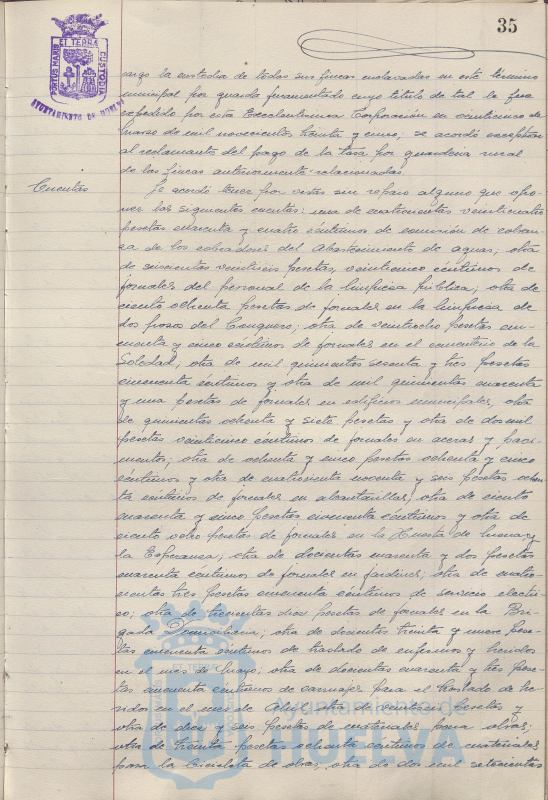 35
ET TERRA
PORTUS MARIS
CUSTODIA
AYUNTAMIENTO DE HUELVA
cargo la custodia de todas sus fincas enclavadas en este término
municipal por guarda juramentado cuyo título de tal le fue
expedido por esta Excelentísima Corporación en veinticinco de
marzo de mil novecientos treinta y cinco; se acordó exceptuar
al reclamante del pago de la tasa por guardería rural
de las fincas anteriormente relacionadas.
Cuentas
Se acordó tener por vistas sin reparo alguno que opo-
ner las siguientes cuentas: una de cuatrocientas veinticuatro
pesetas ochenta y cuatro céntimos de comisión de cobran-
za de los cobradores del Abastecimiento de aguas; otra
de seiscientas veintiseis pesetas, veinticinco céntimos de
jornales del personal de la limpieza pública; otra de
ciento ochenta pesetas de jornales en la limpieza de
dos pozos del Conquero; otra de veintiocho pesetas cin-
cuenta y cinco céntimos de jornales en el cementerio de la
Soledad, otra de mil quinientas sesenta y tres pesetas
cincuenta céntimos y otra de mil quinientas cuarenta
y una pesetas de jornales en edificios municipales, otra
de quinientas ochenta y siete pesetas y otra de dos mil
pesetas veinticinco céntimos de jornales en aceras y paci-
mentos; otra de ochenta y cinco pesetas ochenta y cinco
céntimos y otra de cuatrocientas noventa y seis pesetas ochen-
ta céntimos de jornales en alcantarillas, otra de ciento
cuarenta y cinco pesetas cincuenta céntimos y otra de
ciento ocho pesetas de jornales en la Cuesta de
la Esperanza; otra de doscientas cuarenta y dos pesetas
cuarenta céntimos de jornales en jardines; otra de cuatro-
cientas tres pesetas cincuenta céntimos de servicio eléctri-
co; otra de trescientas diez pesetas de jornales en la Bri-
gada Venesiliana; otra de doscientas treinta y nueve pese-
tas cincuenta céntimos de traslado de enfermos y heridos
en el mes de Mayo; otra de doscientas cuarenta y tres pese-
tas cincuenta céntimos de carruajes para el traslado de he-
ridos en el mes de Abril; otra de veintiuna pesetas y
otra de diez y seis pesetas de materiales para obras;
otra de treinta pesetas ochenta céntimos de materiales
para la bicicleta de obras, otra de dos mil setecientas
ET TERRA
Ayuntamiento de
HUELVA